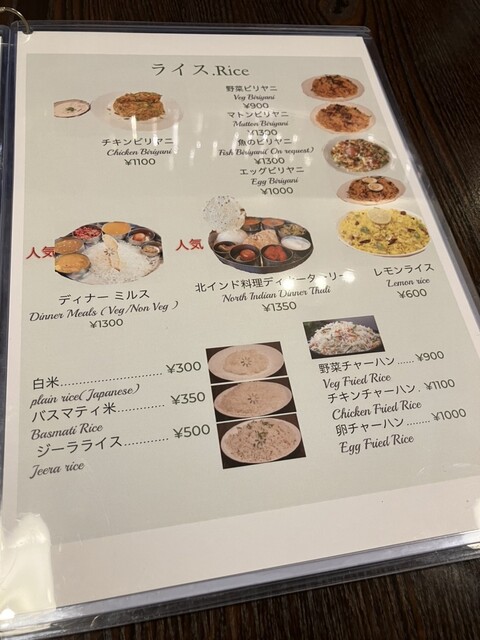 ライス.Rice
チキンビリヤニ
Chicken Biriyani
¥1100
野菜ビリヤニ
Veg Biriyani
¥900
マトンビリヤニ
Mutton Biriyani
¥1300
魚のビリヤニ
Fish Biriyani( On request)
¥1300
エッグビリヤニ
Egg Biriyani
¥1000
人気
ディナー ミルス
Dinner Meals (Veg/Non Veg )
¥1300
人気
北インド料理ディナーターリー
North Indian Dinner Thali
¥1350
レモンライス
Lemon rice
¥600
白米........................ ¥300
plain rice( Japanese)
バスマティ米............ ¥350
Basmati Rice
ジーラライス............ ¥500
Jeera rice
野菜チャーハン...... ¥900
Veg Fried Rice
チキンチャーハン. ¥1100
Chicken Fried Rice
卵チャーハン ........ ¥1000
Egg Fried Rice